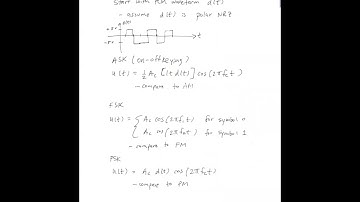 Start with PCM waveform d(t)
- assume d(t) is polar NRZ
d(t)
+5v
-5v
t
ASK (on-off keying)
u(t) = ½ Ac [1+d(t)] cos(2πfct)
- compare to AM
FSK
u(t) = { Ac cos(2πf0t) for symbol 0
Ac cos(2πf1t) for symbol 1
- compare to FM
PSK
u(t) = Ac d(t) cos(2πfct)
- compare to PM